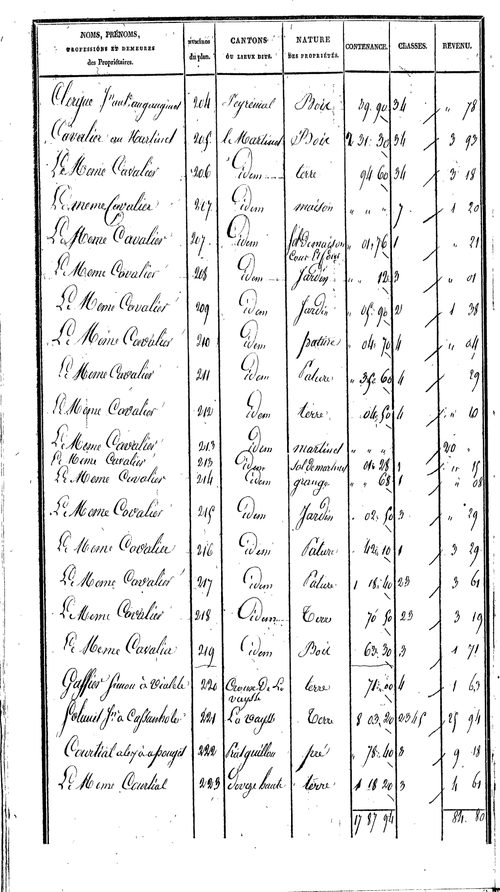 NOMS, PRÉNOMS, PROFESSIONS ET DEMEURES des Propriétaires. | NUMÉROS du plan. | CANTONS OU LIEUX DITS. | NATURE DES PROPRIÉTÉS. | CONTENANCE. | CLASSES. | REVENU.
204 | Bois | 39 90 | 34 | " 78
Cavalier au Martinet | 205 | le Martinet | Bois | 2 31 30 | 34 | 3 93
Le Meme Cavalier | 206 | Idem | terre | 94 60 | 34 | 3 18
Le meme Cavalier | 207 | Idem | maison | " " " | 7 | 1 20
Le Meme Cavalier | 207 | Idem | Sol de maison Cour | " 01 76 | 1 | " 21
Le Meme Cavalier | 208 | Idem | Jardin | " " 12 | 3 | " 01
Le Meme Cavalier | 209 | Idem | Jardin | " 05 90 | 2 | 1 38
Le Meme Cavalier | 210 | Idem | pature | " 04 70 | 4 | " 04
Le Meme Cavalier | 211 | Idem | Pature | " 35 60 | 4 | 29
Le Meme Cavalier | 212 | Idem | terre | 04 50 | 4 | " 10
Le Meme Cavalier | 213 | Idem | martinet | " " " | 20 "
Le Meme Cavalier | 213 | Idem | Sol de martinet | 01 28 | 1 | " 15
Le Meme Cavalier | 214 | Idem | grange | " " 68 | 1 | " 08
Le Meme Cavalier | 215 | Idem | Jardin | 02 50 | 3 | " 29
Le Meme Cavalier | 216 | Idem | Pature | 42 10 | 1 | 3 29
Le Meme Cavalier | 217 | Idem | Pature | 1 18 40 | 23 | 3 61
Le Meme Cavalier | 218 | Idem | Terre | 70 50 | 23 | 3 19
Le Meme Cavalier | 219 | Idem | Bois | 63 30 | 3 | 1 71
Simon à | 220 | De La Vaysse | terre | 71 00 | 4 | 1 63
à | 221 | La Vaysse | Terre | 8 03 20 | 2345 | 25 94
Courtial | 222 | pré | " 78 40 | 3 | 9 18
Le Meme Courtial | 223 | haute | terre | 1 18 20 | 3 | 4 61
17 87 94 | 84 80